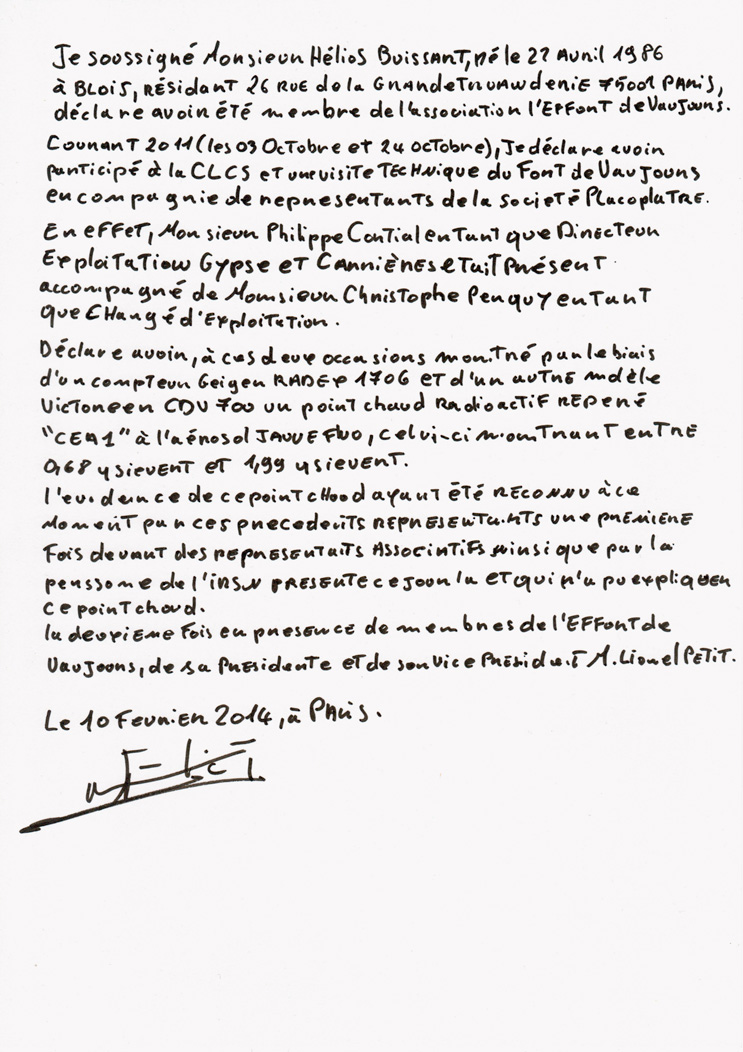 Je soussigné Monsieur Hélios Buissant, né le 27 Avril 1986
à Blois, résidant 26 rue de la Grande Truanderie 75001 Paris,
déclare avoir été membre de l'association l'Effort de Vaujours.
Courant 2011 (les 03 Octobre et 24 Octobre), Je déclare avoir
participé à la CLCS et une visite technique du Fort de Vaujours
en compagnie de representants de la societé Placoplatre.
En effet, Monsieur Philippe Contial en tant que Directeur
Exploitation Gypse et Carrières etait présent
accompagné de Monsieur Christophe Perquy en tant
que Chargé d'Exploitation.
Déclare avoir, à ces deux occasions montré par le biais
d'un compteur Geiger RADEX 1706 et d'un autre modèle
Victoreen CDV 700 un point chaud radioactif repéré
"CEA1" à l'aérosol jaune fluo, celui-ci montrant entre
0,68 µsievent et 1,99 µsievent.
l'evidence de ce point chood ayant été reconnu à ce
moment par ces precedents representants une premiere
fois devant des representants associatifs ainsi que par la
personne de l'IRSN presente ce jour la et qui n'a pu expliquer
ce point chaud.
la deuxieme fois en presence de membres de l'Effort de
Vaujours, de sa Presidente et de son Vice President M. Lionel PETIT.
Le 10 Fevrier 2014, à Paris.